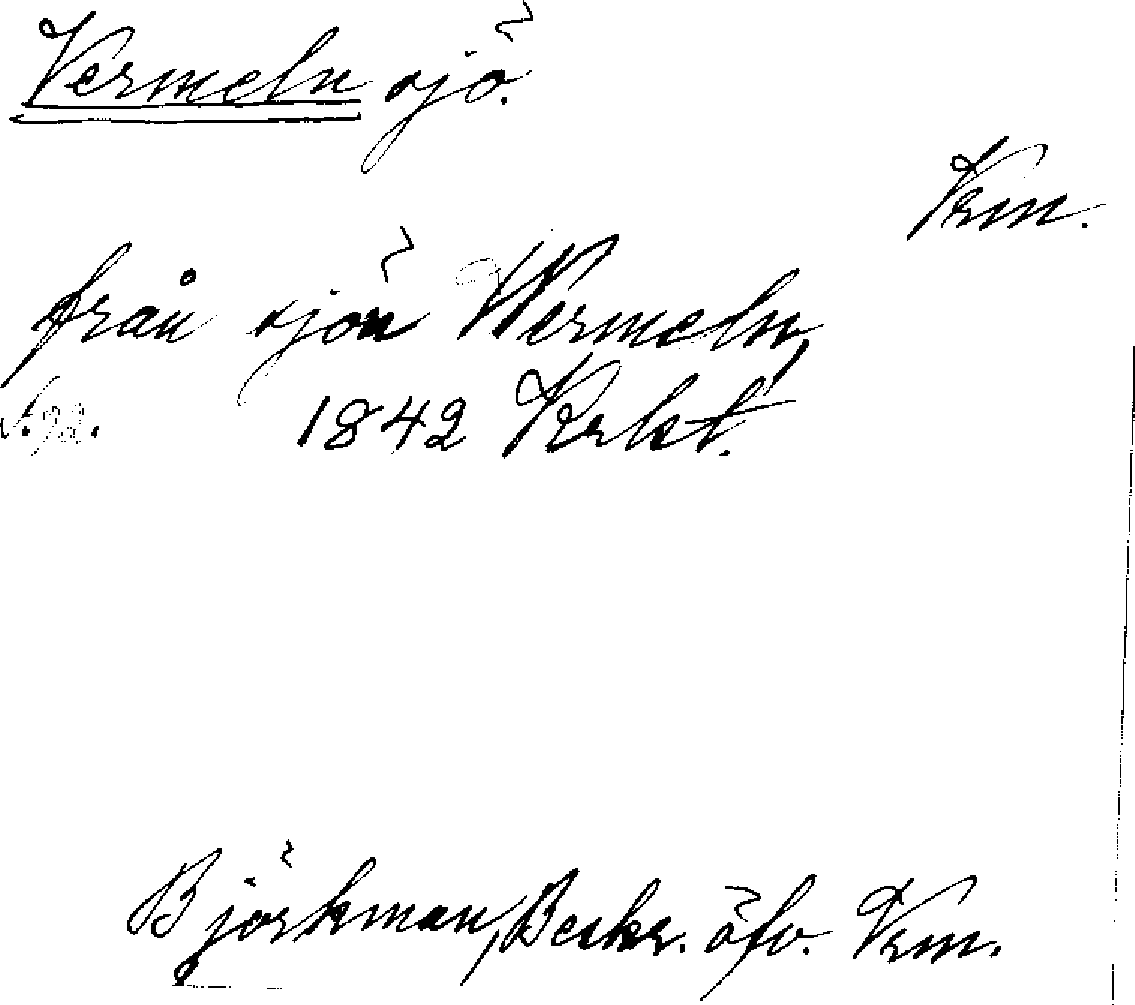 Vermeln sjö.
Vrm.
från sjön Wermeln,
1842 Krkst.
Björkman, Beskr. öfv. Vrm.